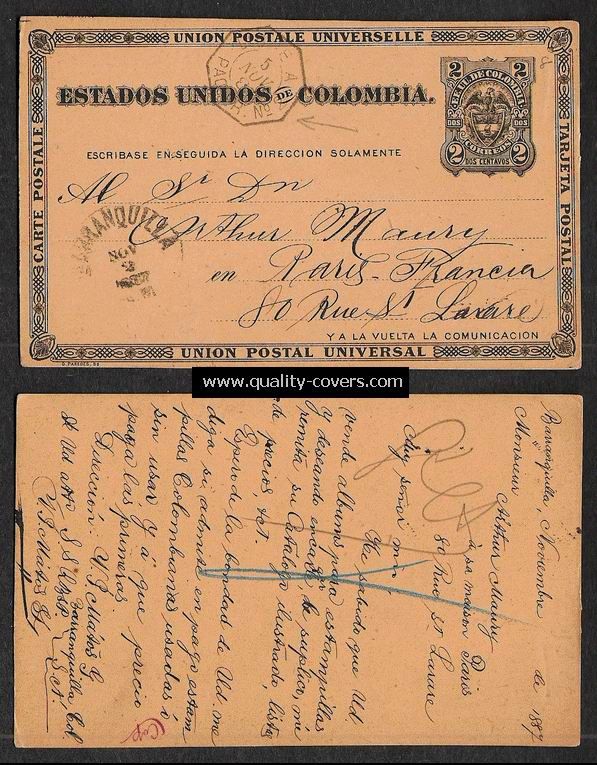 UNION POSTALE UNIVERSELLE
CARTE POSTALE
TARJETA POSTAL
ESTADOS UNIDOS DE COLOMBIA.
2 2
EE. UU. DE COLOMBIA
DOS DOS
CORREOS
2 2
DOS CENTAVOS
5
NOV
PAQ
Nº
ESCRIBASE EN SEGUIDA LA DIRECCION SOLAMENTE
Al Sr Dn
Arthur Maury
en Paris-Francia
80 Rue St Lazare
BARRANQUILLA
NOV
2
Y A LA VUELTA LA COMUNICACION
UNION POSTAL UNIVERSAL
D. PAREDES, BS
www.quality-covers.com
Barranquilla, Noviembre de 1887
Monsieur Arthur Maury
à sa maison Paris
80 Rue St Lazare
Muy señor mio
Ha sabido que Ud.
vende albums para estampillas
y deseando encargar, le suplico, me
remita su Catálogo ilustrado, lista
de precios, &ct.
Espero de la bondad de Ud. me
diga si admite en pago estam-
pillas Colombianas usadas i
sin usar y à que precio
paga las primeras
Direccion: V. P. Matos G
Barranquilla Col
S. S. &ct.
V. P. Matos G